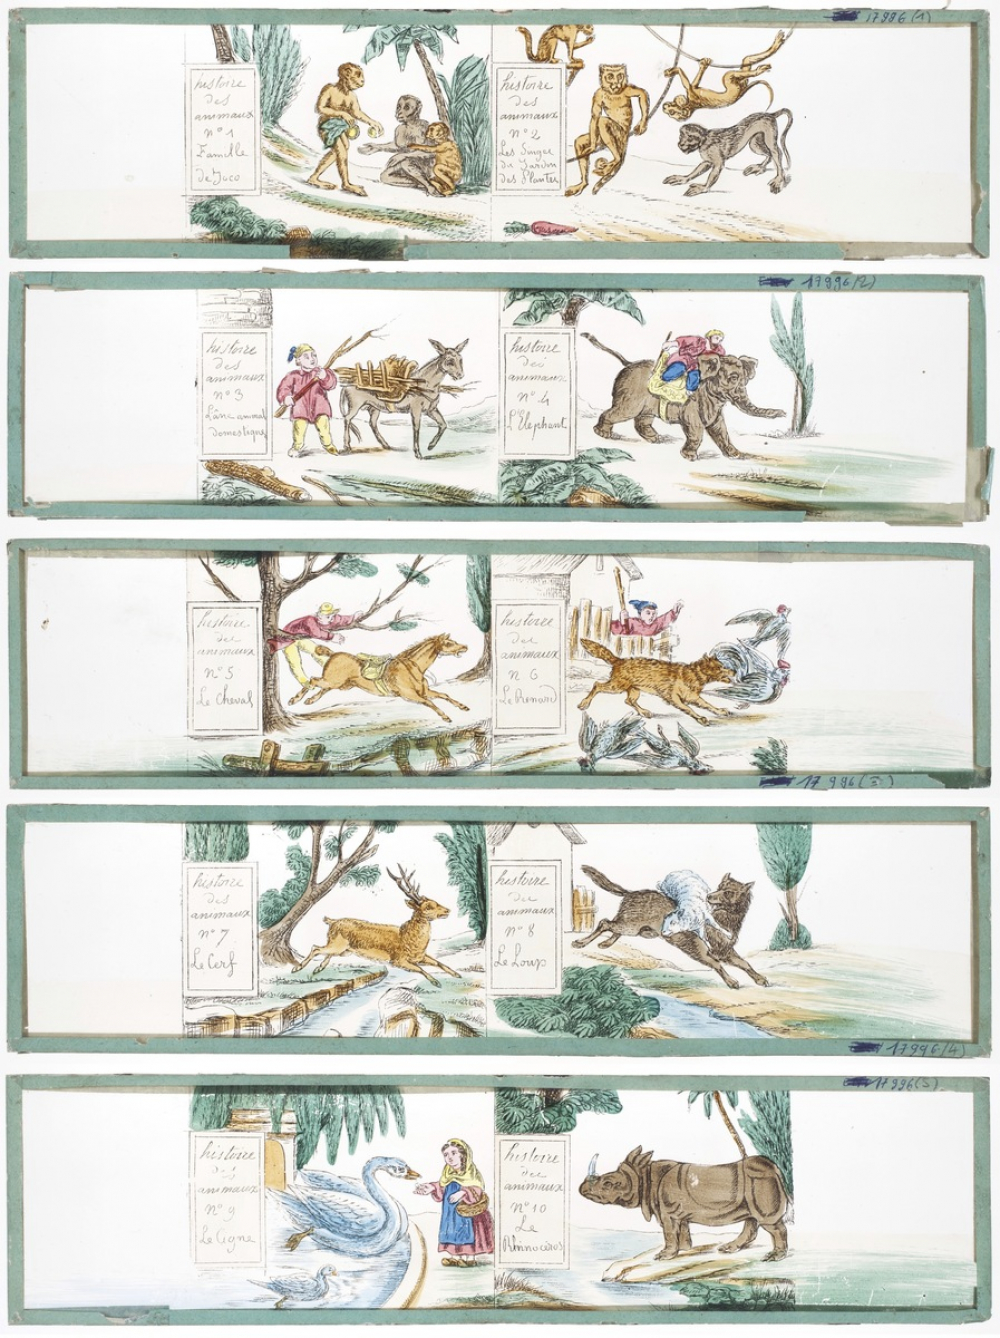 17996(1)
histoire
des
animaux
n° 1
Famille
de Joco
histoire
des
animaux
n° 2
Les Singes
du Jardin
des Plantes
17996(2)
histoire
des
animaux
n° 3
L'âne animal
domestique
histoire
des
animaux
n° 4
L'Elephant
histoire
des
animaux
n° 5
Le Cheval
histoire
des
animaux
n 6
Le Renard
17996(3)
histoire
des
animaux
n° 7
Le Cerf
histoire
des
animaux
n° 8
Le Loup
17996(4)
17996(5)
histoire
des
animaux
n° 9
Le Cigne
histoire
des
animaux
n° 10
Le
Rhinoceros